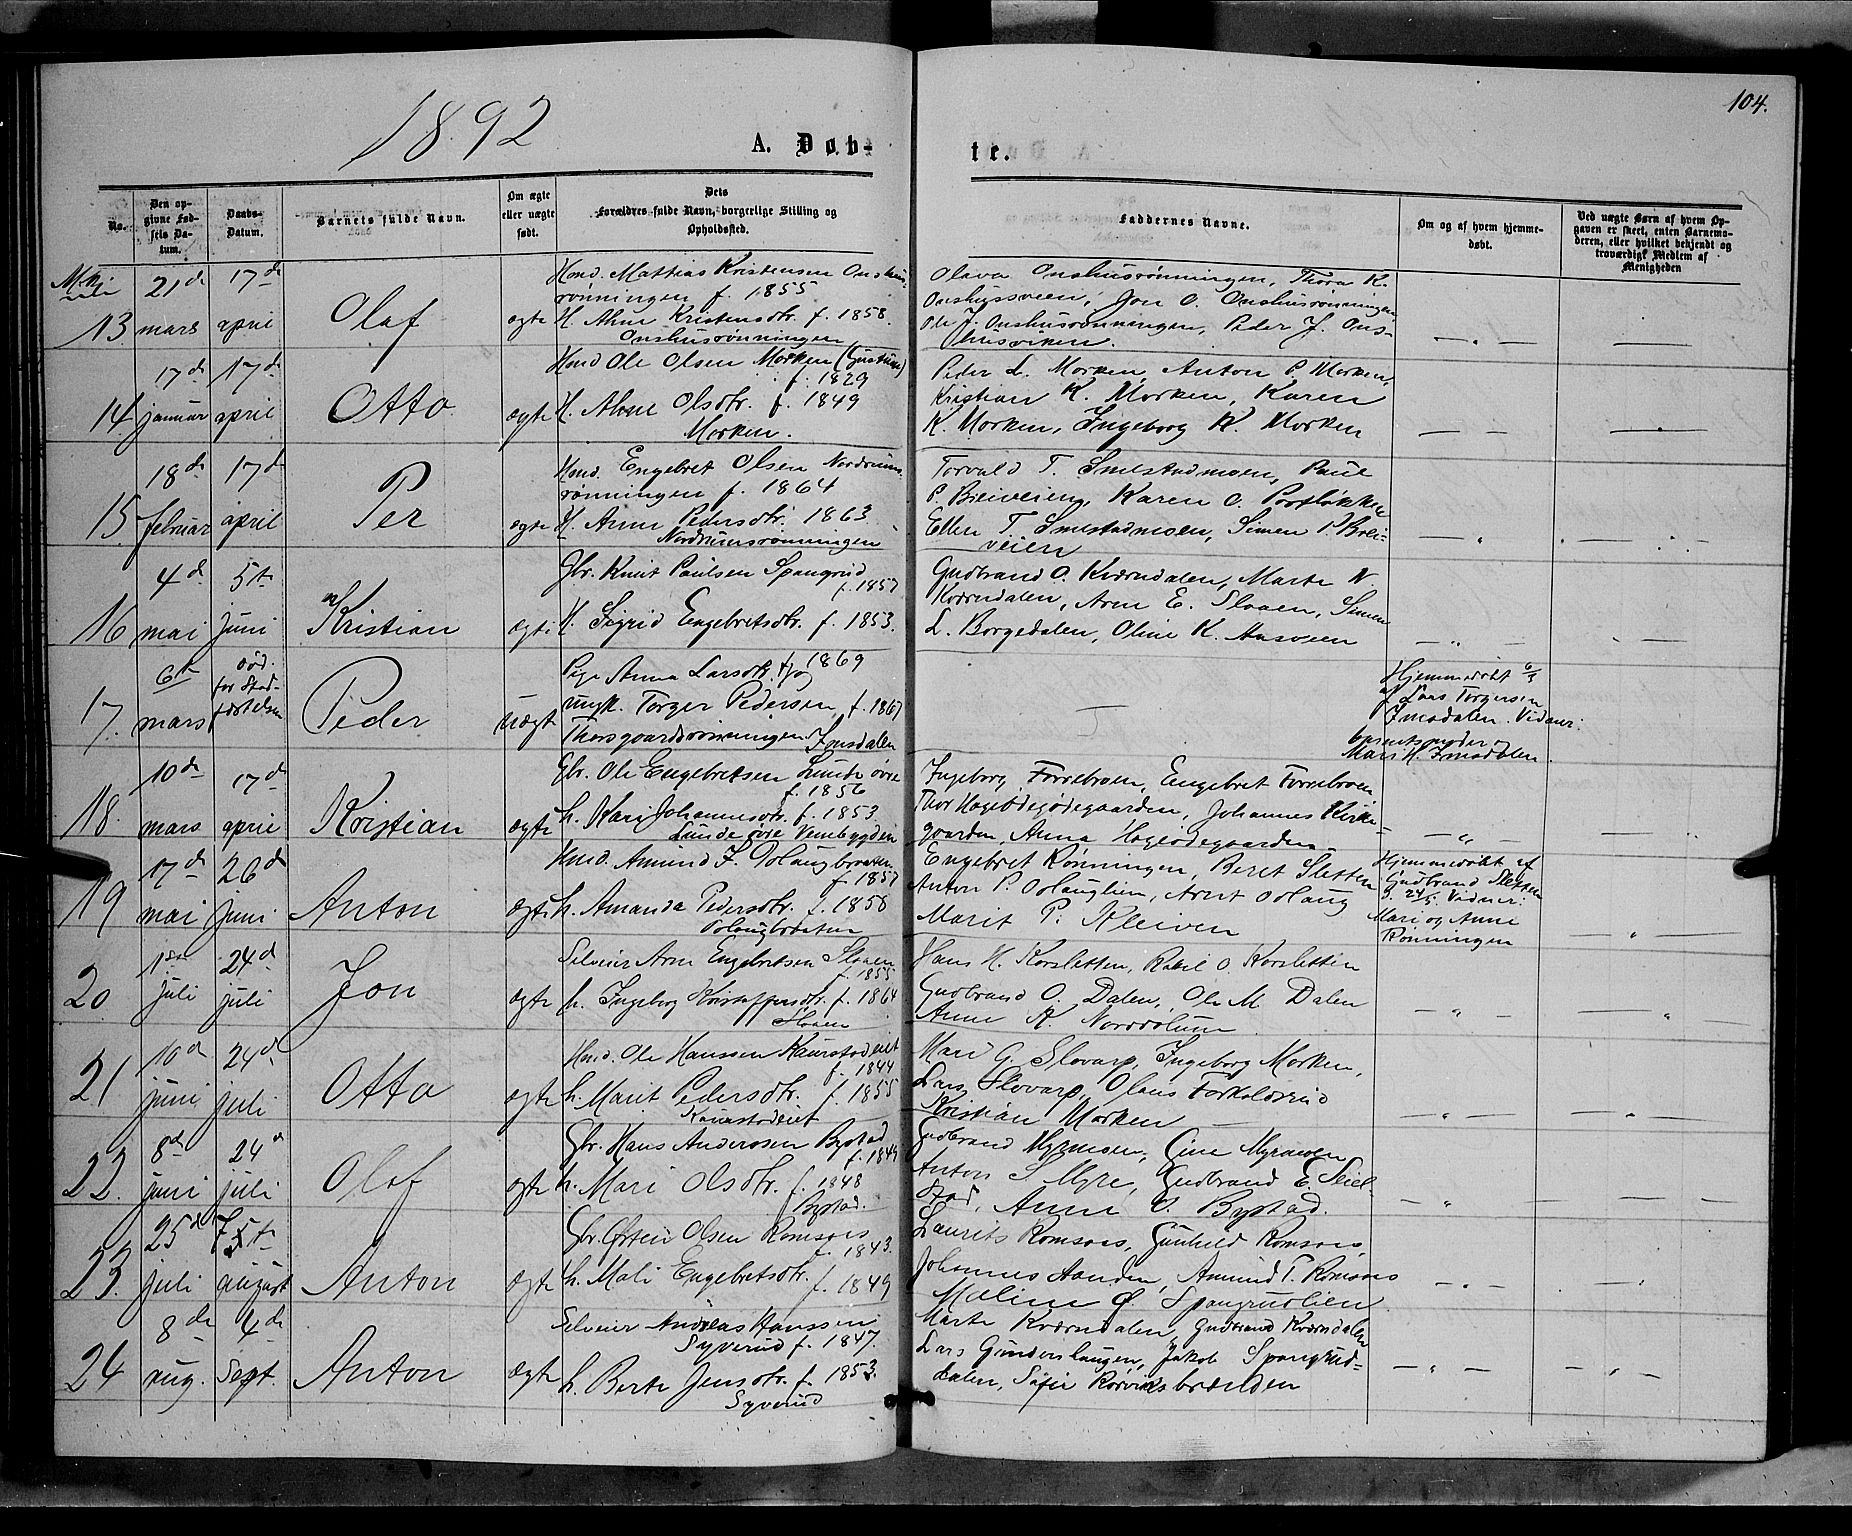 104.
1892
A. Døb-
te.
No.
Den op-
givne Fød-
sels Da-
tum.
Daabs-
Datum.
Barnets fulde Navn.
Om ægte
eller uægte
født.
Dets
Forældres fulde Navn, borgerlige Stilling og
Opholdssted.
Faddernes Navne.
Om og af hvem hjemme-
døbt.
Ved uægte Børn af hvem Op-
gaven er skeet, enten Barnemo-
deren, eller hvilket bekjendt og
troværdigt Medlem af
Menigheden
13
21de
mars
17de
april
Olaf
ægte
Hmd. Mattias Kristensen Onshus-
rønningen f. 1855
H. Ahne Kristensdtr. f. 1858.
Onshusrønningen
Olava Onshusrønningen, Thora K.
Onshussveen, Jon O. Onshusrønningen
Ole J. Onshusrønningen, Peder J. Ons-
husviken.
14
17de
januar
17de
april
Otto
ægte
Hmd Ole Olsen Morken
f. 1829
H. Ahne Olsdtr. f. 1849
Morken.
Peder L. Morken, Anton P. Morken,
Kristian K. Morken, Karen
K. Morken, Ingeborg K. Morken
15
18de
februar
17de
april
Per
ægte
Hmd. Engebret Olsen Nordrums-
rønningen f. 1864
H. Anne Pedersdtr. 1863
Nordrumsrønningen
Torvald T. Smestadmoen, Paul
P. Breiveien, Karen O. Portløkken
Ellen T. Smestadmoen, Simen P. Brei-
veien
16
4de
mai
5te
juni
Kristian
ægte
Gbr. Knut Paulsen Spangrud
f. 1857
H. Sigrid Engebretsdtr. f. 1853.
Gudbrand O. Kværndalen, Marte N.
Kværndalen, Arne E. Sloaen, Simen
L. Borgedalen, Oline K. Aasveen
17.
6te
mars
død
for Stad-
fæstelsen
Peder
uægte
Pige Anna Larsdtr. 1869
ungk. Torger Pedersen f. 1867
Thorsgaardsrønningen Imsdalen
Hjemmedøbt 6/3
af Lars Torgersen
Imsdalen. Vidner:
barnets moder og
Mari H. Imsdalen.
18.
10de
mars
17de
april
Kristian
ægte
Gbr. Ole Engebretsen Lunde øvre
f. 1856
h. Kari Johannesdtr. f. 1853.
Lunde øvre Vembygden
Ingeborg Forrebroen, Engebret Forrebroen
Thor Hageødegaarden, Johannes Kirke-
gaarden, Anna Hageødegaarden
19
17de
mai
26de
juni
Anton
ægte
Hmd. Amund J.
f. 1857
h. Amanda Pedersdtr. f. 1858
Engebret Rønningen, Beret Sletten
Anton P.
Marit P. Kleiven
Hjemmedøbt af
Gudbrand Sletten
d. 24/5. Vidner:
Mari og Anne
Rønningen
20
1ste
juli
24de
juli
Jon
ægte
Selveier Arne Engebretsen Sloaen
f. 1855
h. Ingeborg Kristoffersdtr. f. 1864
Sloaen
Hans H. Korsletten, Rakel O. Korsletten
Gudbrand O. Dalen, Ole M. Dalen
Anne K.
21
10de
juni
24de
juli
Otto
ægte
Hmd. Ole Hanssen Kaurstadeiet
f. 1844
h. Marit Pedersdtr. f. 1855
Kaurstadeiet
Mari G. Slovarp, Ingeborg Morken,
Lars Slovarp, Olaus
Kristian Morken
22.
8de
juni
24de
juli
Olaf
ægte
Gbr. Hans Anderssen Bystad
f. 1849
h. Mari Olsdtr. f. 1848
Bystad.
Gudbrand Myrmoen, Gine Myrmoen
Anton S. Myre, Gudbrand E. Skiel-
stad, Anne O. Bystad.
23.
25de
juli
5te
august
Anton
ægte
Gbr. Østen Olsen Romsaas
f. 1843.
h. Mali Engebretsdtr. f. 1849
Laurits Romsaas, Gunhild Romsaas,
Johannes Haugen, Amund T. Romsaas
Maline Ø. Spangrudlien
24
8de
aug.
4de
Sept.
Anton
ægte
Selveier Andreas Hanssen
Syverud f. 1847.
h. Berte Jensdtr. f. 1853.
Syverud
Marte Kværndalen, Gudbrand Kværndalen
Lars Gunderslaugen, Jakob Spangrud-
dalen, Sofie Rørviksbrænden